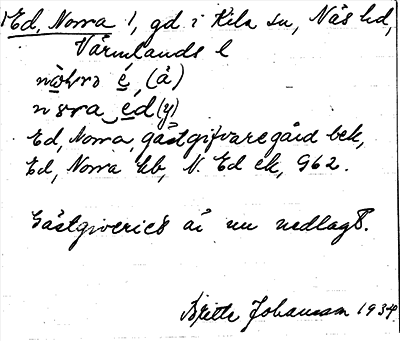 Ed, Norra 1, gd i Kila sn, Näs hd,
Värmlands l
é, (å)
nora ed (y)
Ed, Norra, gästgifvaregård bek,
Ed, Norra kb, N. Ed ek, G62.
Gästgiveriet är nu nedlagt.
Britta Johansson 1934.